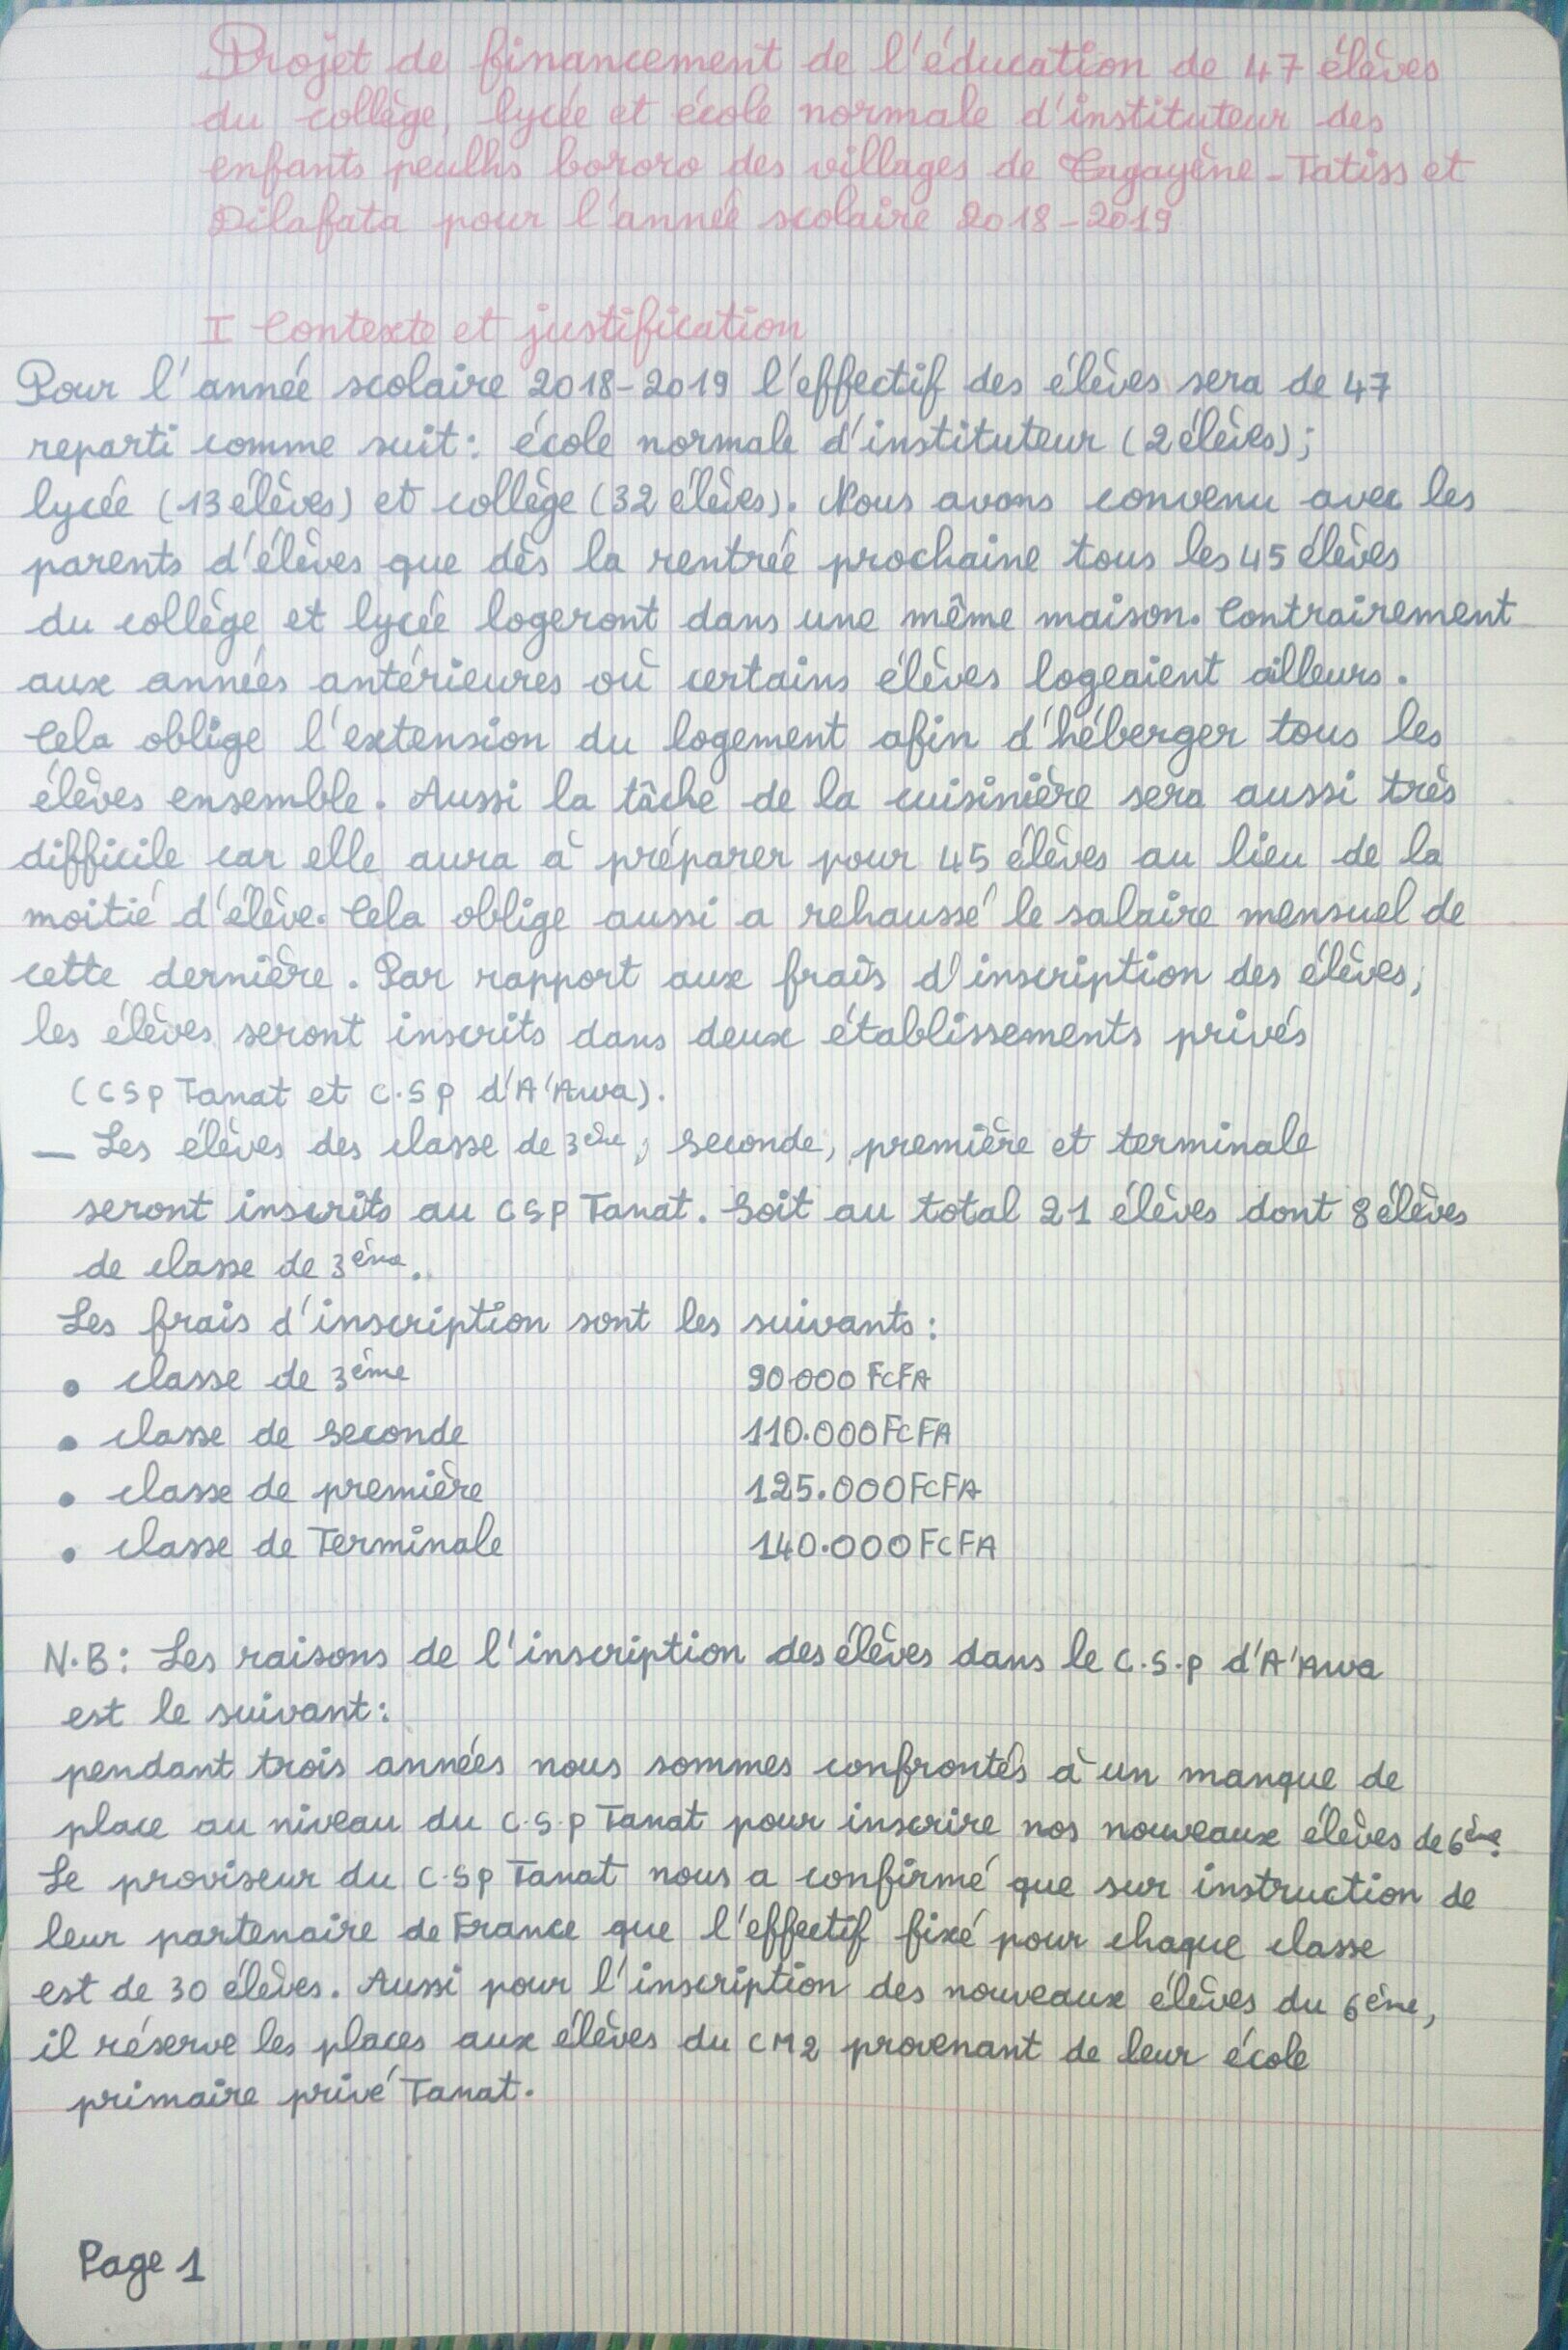 Projet de financement de l'éducation de 47 élèves
du collège, lycée et école normale d'instituteur des
enfants peulhs bororo des villages de Tagayène-Tatiss et
Dilafata pour l'année scolaire 2018-2019
I Contexte et justification
Pour l'année scolaire 2018-2019 l'effectif des élèves sera de 47
reparti comme suit: école normale d'instituteur (2 élèves);
lycée (13 élèves) et collège (32 élèves). Nous avons convenu avec les
parents d'élèves que dès la rentrée prochaine tous les 45 élèves
du collège et lycée logeront dans une même maison. Contrairement
aux années antérieures où certains élèves logeaient ailleurs.
Cela oblige l'extension du logement afin d'héberger tous les
élèves ensemble. Aussi la tâche de la cuisinière sera aussi très
difficile car elle aura à préparer pour 45 élèves au lieu de la
moitié d'élève. Cela oblige aussi a rehaussé le salaire mensuel de
cette dernière. Par rapport aux frais d'inscription des élèves,
les élèves seront inscrits dans deux établissements privés
(CSP Tanat et C.S.P d'A'Awa).
— Les élèves des classe de 3ème, seconde, première et terminale
seront inscrits au CSP Tanat. Soit au total 21 élèves dont 8 élèves
de classe de 3ème.
Les frais d'inscription sont les suivants:
• classe de 3ème 90000 FCFA
• classe de seconde 110.000 FCFA
• classe de première 125.000 FCFA
• classe de Terminale 140.000 FCFA
N.B: Les raisons de l'inscription des élèves dans le C.S.P d'A'Awa
est le suivant:
pendant trois années nous sommes confrontés à un manque de
place au niveau du C.S.P Tanat pour inscrire nos nouveaux élèves de 6ème.
Le proviseur du C.S.P Tanat nous a confirmé que sur instruction de
leur partenaire de France que l'effectif fixé pour chaque classe
est de 30 élèves. Aussi pour l'inscription des nouveaux élèves du 6ème,
il réserve les places aux élèves du CM2 provenant de leur école
primaire privé Tanat.
Page 1